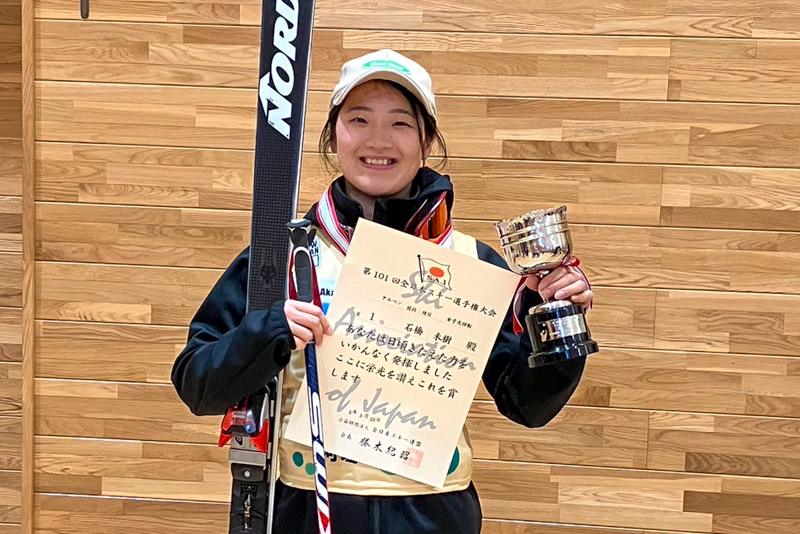 NORD
SAJ
第101回全日本スキー選手権大会
アルペン 競技 種目 女子大回転
第1位 石橋 未樹 殿
あなたは日頃きたえた力を
いかんなく発揮しました
ここに栄光を讃えこれを賞
します
公益財団法人 全日本スキー連盟
会長 勝木紀昭
Ski
Association
of Japan